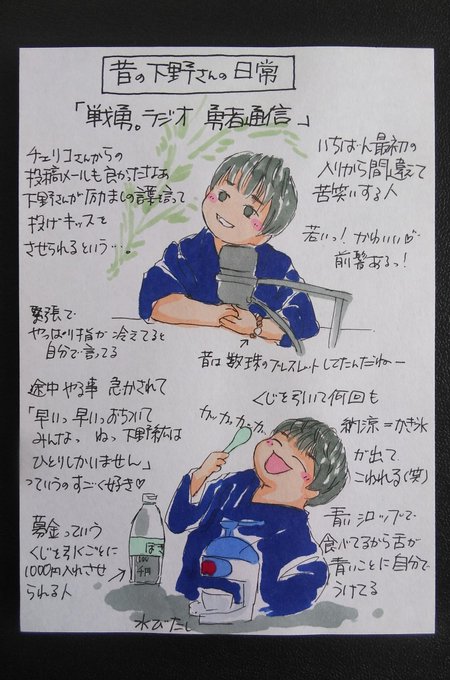 昔の下野さんの日常
「戦勇。ラジオ 勇者通信」
チェリコさんからの
投稿メールも良かったなぁ
下野さんが励ましの護信って
投げキッスを
させられるという…
いちばん最初の
入りから間違えて
苦笑いする人
若いっ! かわいい♡
前髪あるっ!
緊張で
やっぱり指が冷えてると
自分で言ってる
昔は数珠のブレスレットしてたんだねー
途中 やる事 急かされて
「早いっ早いっおちついて
みんなっ ねっ 下野紘は
ひとりしかいません」
っていうのすごく好き♡
くじを引いて何回も
納涼=かき氷
が出て
こわれる(笑)
カッカッカッカッ
青いシロップで
食べてるから舌が
青いことに自分で
うけてる
募金っていう
くじを引くごとに
1000円入れさせ
られる人
水びたし